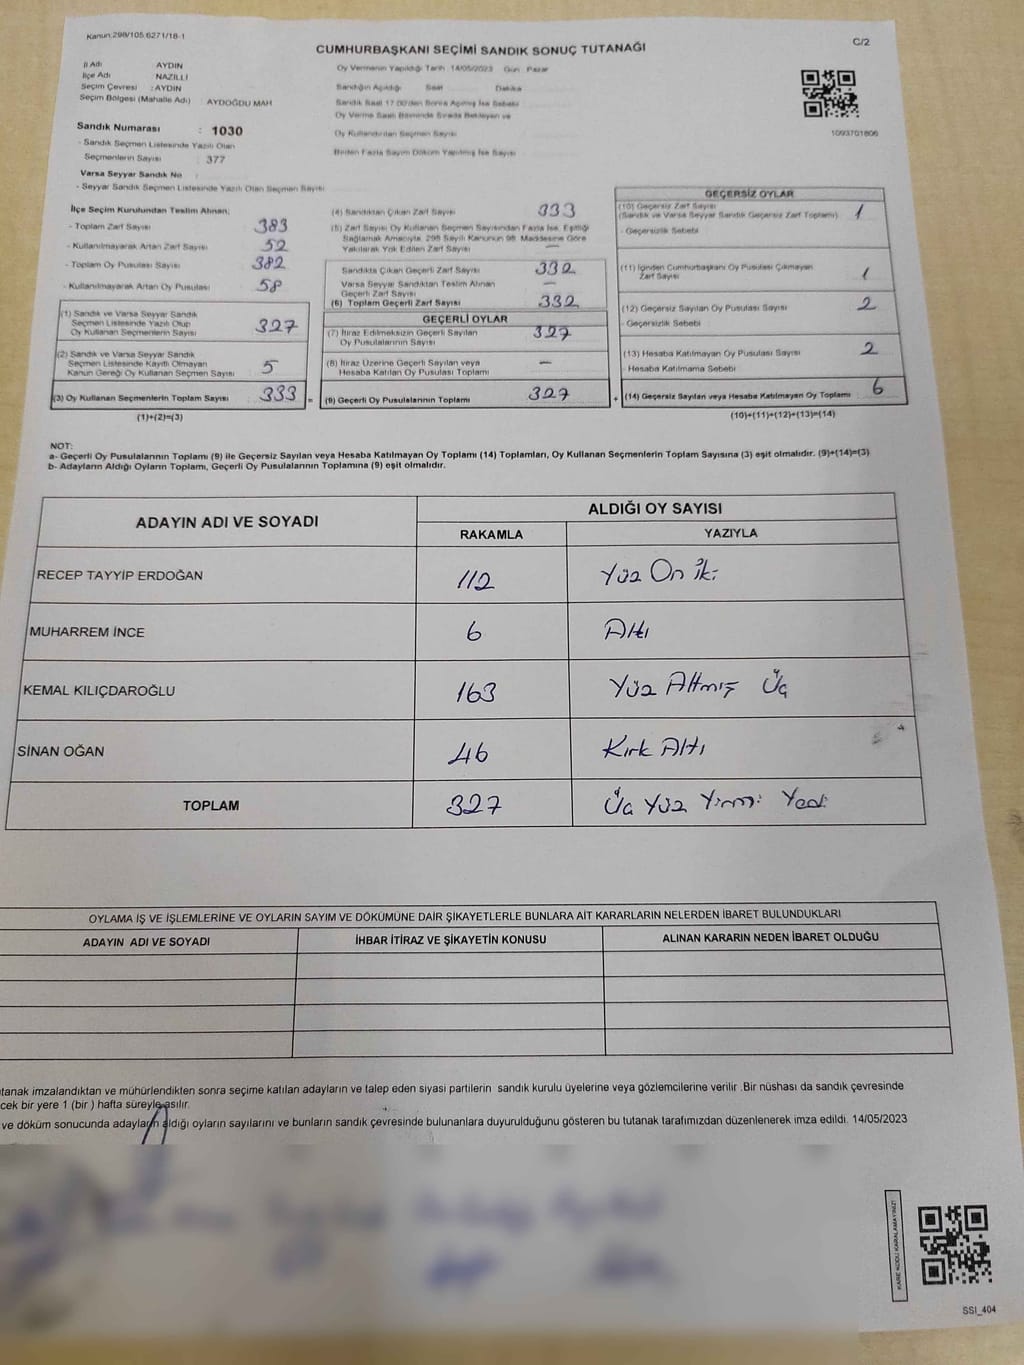 Kanun:298/105.6271/18-1
CUMHURBAŞKANI SEÇİMİ SANDIK SONUÇ TUTANAĞI
C/2
İl Adı AYDIN
İlçe Adı NAZİLLİ
Seçim Çevresi : AYDIN
Seçim Bölgesi (Mahalle Adı) : AYDOĞDU MAH
Sandık Numarası : 1030
- Sandık Seçmen Listesinde Yazılı Olan
Seçmenlerin Sayısı : 377
Varsa Seyyar Sandık No :
- Seyyar Sandık Seçmen Listesinde Yazılı Olan Seçmen Sayısı
Oy Vermenin Yapıldığı Tarih 14/05/2023 Gün Pazar
Sandığın Açıldığı Saat Dakika
Sandık Saat 17.00'den Sonra Açılmış İse Sebebi
Oy Verme Saati Bitiminde Sırada Bekleyen ve
Oy Kullandırılan Seçmen Sayısı
Birden Fazla Sayım Döküm Yapılmış İse Sayısı
1093701806
İlçe Seçim Kurulundan Teslim Alınan;
- Toplam Zarf Sayısı 383
- Kullanılmayarak Artan Zarf Sayısı 52
- Toplam Oy Pusulası Sayısı 382
- Kullanılmayarak Artan Oy Pusulası 58
(1) Sandık ve Varsa Seyyar Sandık
Seçmen Listesinde Yazılı Olup
Oy Kullanan Seçmenlerin Sayısı 327
(2) Sandık ve Varsa Seyyar Sandık
Seçmen Listesinde Kayıtlı Olmayan
Kanun Gereği Oy Kullanan Seçmen Sayısı 5
(3) Oy Kullanan Seçmenlerin Toplam Sayısı 333 =
(1)+(2)=(3)
(4) Sandıktan Çıkan Zarf Sayısı 333
(5) Zarf Sayısı Oy Kullanan Seçmen Sayısından Fazla İse, Eşitliği
Sağlamak Amacıyla, 298 Sayılı Kanunun 98. Maddesine Göre
Yakılarak Yok Edilen Zarf Sayısı —
Sandıkta Çıkan Geçerli Zarf Sayısı 332
Varsa Seyyar Sandıktan Teslim Alınan
Geçerli Zarf Sayısı —
(6) Toplam Geçerli Zarf Sayısı 332
GEÇERLİ OYLAR
(7) İtiraz Edilmeksizin Geçerli Sayılan
Oy Pusulalarının Sayısı 327
(8) İtiraz Üzerine Geçerli Sayılan veya
Hesaba Katılan Oy Pusulası Toplamı —
(9) Geçerli Oy Pusulalarının Toplamı 327 +
GEÇERSİZ OYLAR
(10) Geçersiz Zarf Sayısı
(Sandık ve Varsa Seyyar Sandık Geçersiz Zarf Toplamı) 1
- Geçersizlik Sebebi
(11) İçinden Cumhurbaşkanı Oy Pusulası Çıkmayan
Zarf Sayısı 1
(12) Geçersiz Sayılan Oy Pusulası Sayısı 2
- Geçersizlik Sebebi
(13) Hesaba Katılmayan Oy Pusulası Sayısı 2
- Hesaba Katılmama Sebebi
(14) Geçersiz Sayılan veya Hesaba Katılmayan Oy Toplamı 6
(10)+(11)+(12)+(13)=(14)
NOT:
a- Geçerli Oy Pusulalarının Toplamı (9) ile Geçersiz Sayılan veya Hesaba Katılmayan Oy Toplamı (14) Toplamları, Oy Kullanan Seçmenlerin Toplam Sayısına (3) eşit olmalıdır. (9)+(14)=(3)
b- Adayların Aldığı Oyların Toplamı, Geçerli Oy Pusulalarının Toplamına (9) eşit olmalıdır.
ADAYIN ADI VE SOYADI
ALDIĞI OY SAYISI
RAKAMLA YAZIYLA
RECEP TAYYİP ERDOĞAN 112 Yüz On İki
MUHARREM İNCE 6 Altı
KEMAL KILIÇDAROĞLU 163 Yüz Altmış Üç
SİNAN OĞAN 46 Kırk Altı
TOPLAM 327 Üç Yüz Yirmi Yedi
OYLAMA İŞ VE İŞLEMLERİNE VE OYLARIN SAYIM VE DÖKÜMÜNE DAİR ŞİKAYETLERLE BUNLARA AİT KARARLARIN NELERDEN İBARET BULUNDUKLARI
ADAYIN ADI VE SOYADI İHBAR İTİRAZ VE ŞİKAYETİN KONUSU ALINAN KARARIN NEDEN İBARET OLDUĞU
utanak imzalandıktan ve mühürlendikten sonra seçime katılan adayların ve talep eden siyasi partilerin sandık kurulu üyelerine veya gözlemcilerine verilir .Bir nüshası da sandık çevresinde
cek bir yere 1 (bir ) hafta süreyle asılır.
ve döküm sonucunda adayların aldığı oyların sayılarını ve bunların sandık çevresinde bulunanlara duyurulduğunu gösteren bu tutanak tarafımızdan düzenlenerek imza edildi. 14/05/2023
KARE KODU KARALAMAYINIZ!
SSI_404